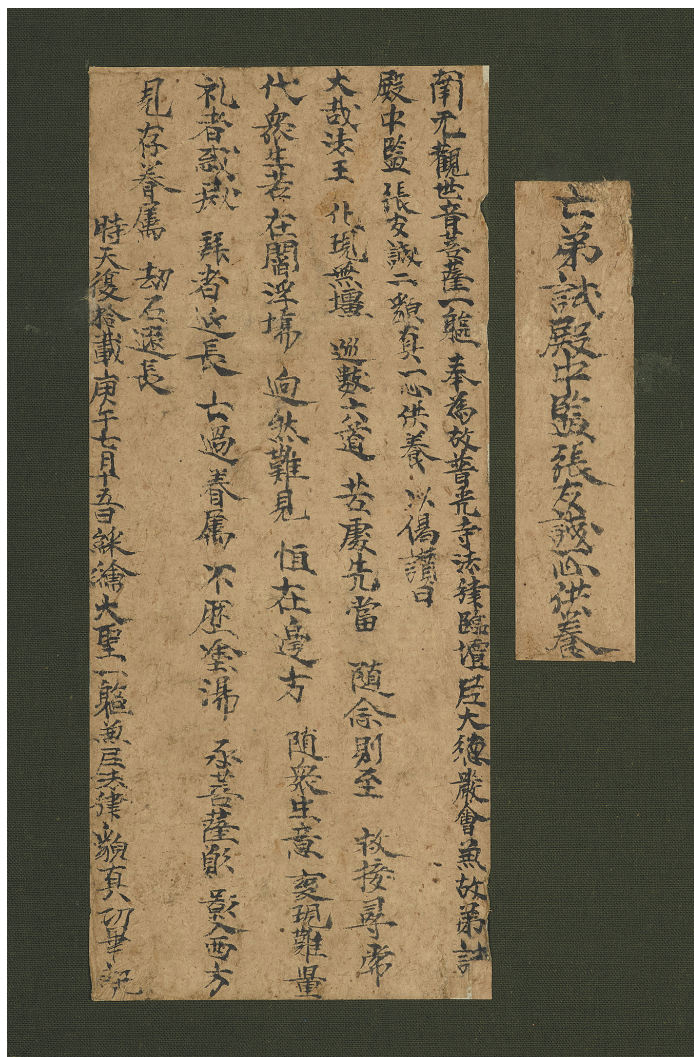 亡弟試殿中監張友誠一心供養
南无觀世音菩薩一軀 奉為故普光寺法律臨壇尼大德嚴會兼故弟試
殿中監張友誠二邈真一心供養 以偈讚曰
大哉法王 化現無壃 巡歷六道 苦處先當 随念則至 救接尋
代衆生苦 在閻浮場 迥然難見 恒在邊方 随衆生意 變現難量
礼者烕 拜者延長 亡過眷属 不歷塗湯 承菩薩願 影入西方
見存眷属 劫石遐長
時天復拾載庚午七月十五日 綵繪大聖一軀兼尼法律邈真功畢記